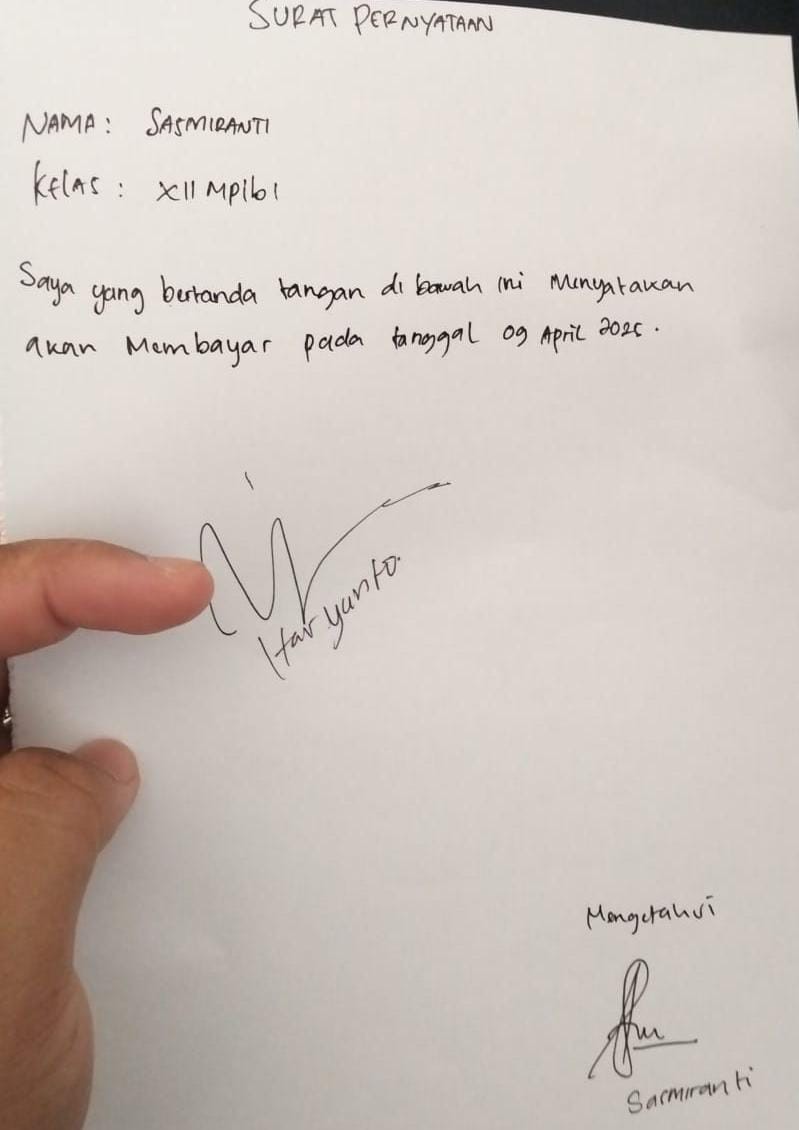 SURAT PERNYATAAN
NAMA : SASMIRANTI
KElAS : XII MPlb 1
Saya yang bertanda tangan di bawah ini Menyatakan
akan Membayar pada tanggal 09 April 2025.
Haryanto.
Mengetahui
Sasmiranti